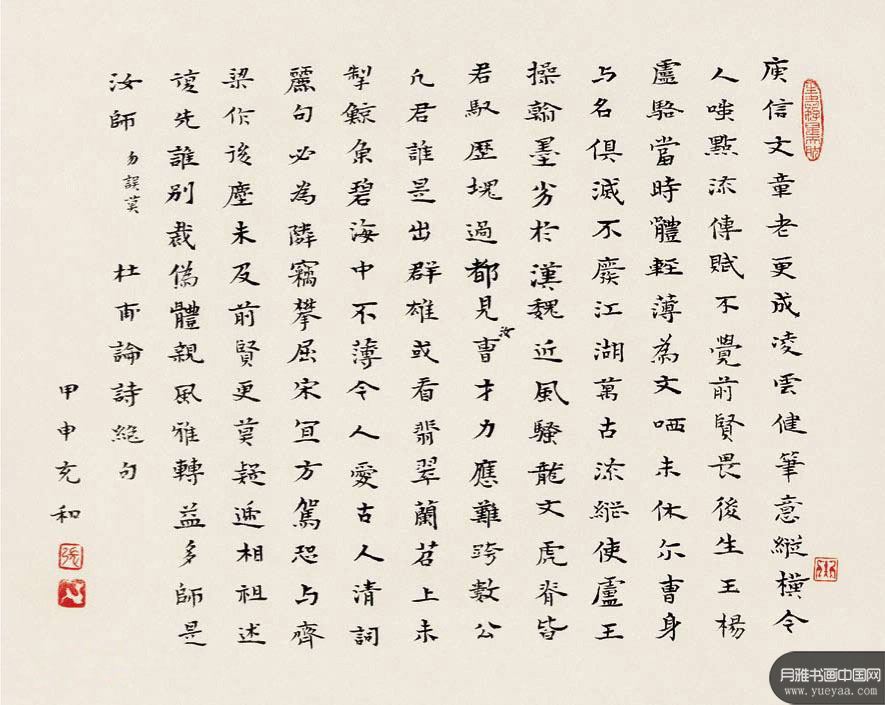 庾信文章老更成凌雲健筆意縱橫今
人嗤點流傳賦不覺前賢畏後生王楊
盧駱當時體輕薄為文哂未休尔曹身
与名俱滅不廢江湖萬古流縱使盧王
操翰墨劣於漢魏近風騷龍文虎脊皆
君馭歷塊過都見汝曹才力應難跨數公
凡君誰是出群雄或看翡翠蘭苕上未
掣鯨魚碧海中不薄今人愛古人清詞
麗句必為隣竊攀屈宋宜方駕恐与齊
梁作後塵未及前賢更莫疑遞相祖述
復先誰別裁偽體親風雅轉益多師是
汝師 勿誤莫 杜甫論詩絕句
甲申充和
張
月雅书画中国网
www.yueyaa.com